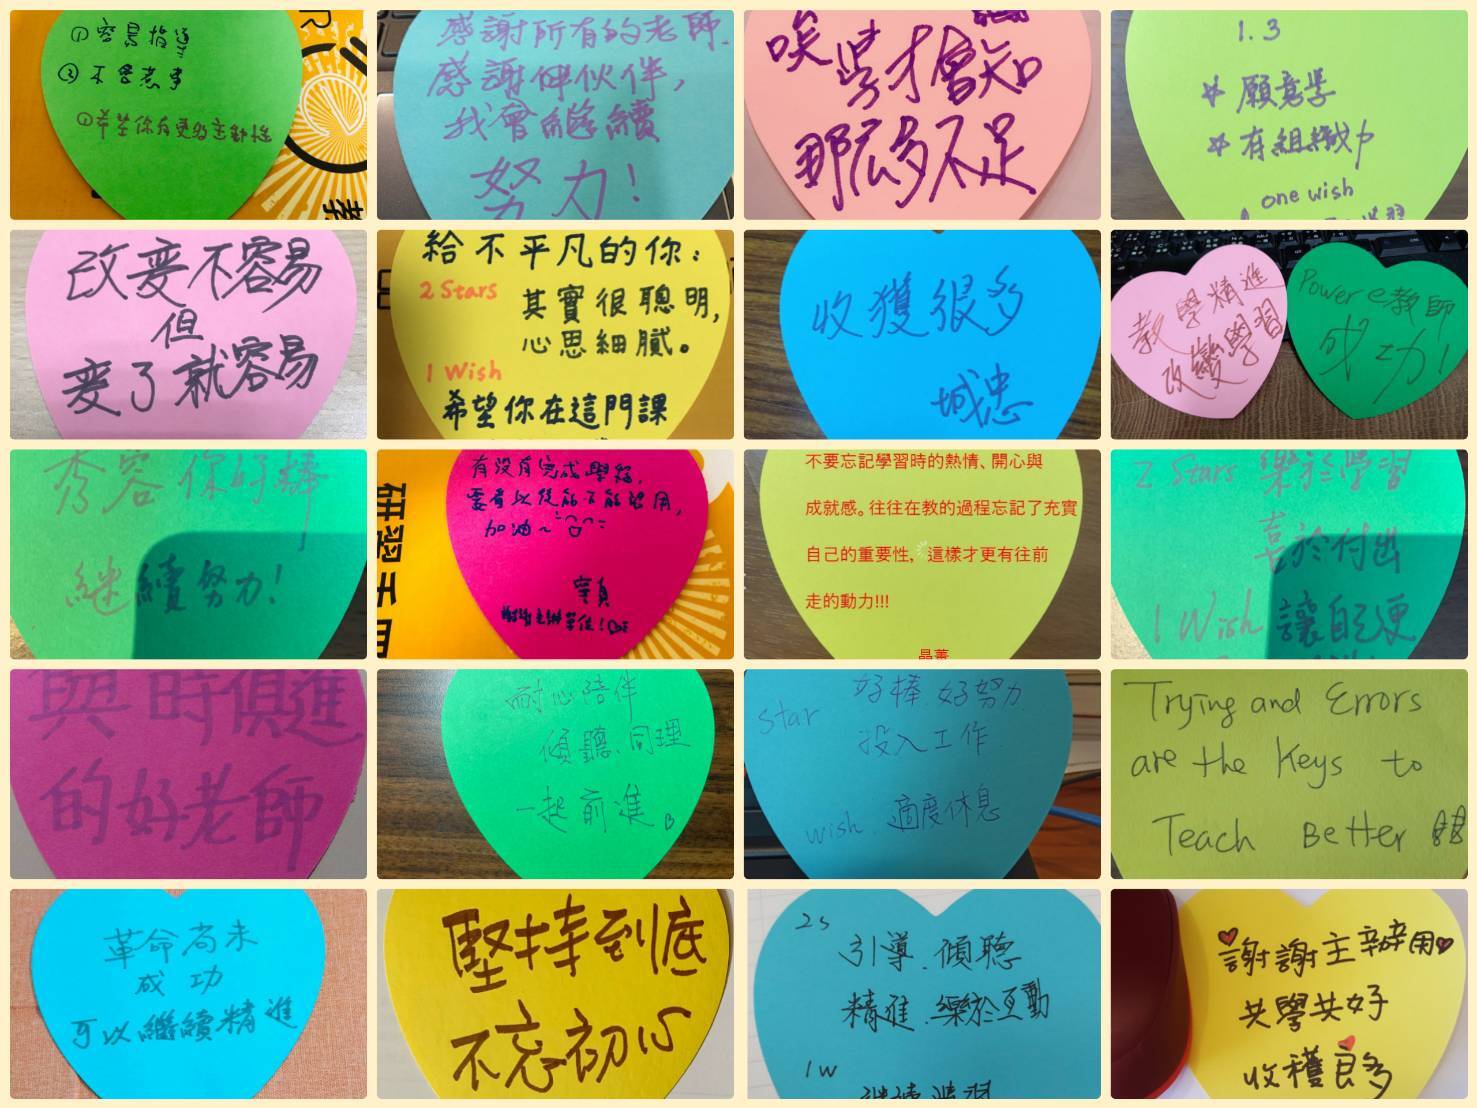 ①容易指導
②不會老實
①希望你有更多主動性
感謝所有的老師
感謝伴伙伴，
我會繼續
努力！
唉學才會知
那広多不足
1.3
☆ 願意學
☆ 有組織力
one wish
改変不容易
但
変了就容易
給不平凡的你：
2 Stars
其實很聰明，
心思細膩。
1 Wish
希望你在這門課
收獲很多
城忠
教學精進
改變學習
Power e教師
成功！
秀容你好棒
繼續努力！
有沒有完成學習，
要看以後能不能習用，
加油～
研習手冊
不要忘記學習時的熱情、開心與
成就感。往往在教的過程忘記了充實
自己的重要性，這樣才更有往前
走的動力!!!
晶薰
2 Stars 樂於學習
喜於付出
1 Wish 讓自己更
與時俱進
的好老師
耐心陪伴
傾聽、同理
一起前進。
star 好棒、好努力
投入工作
wish、適度休息
Trying and Errors
are the Keys to
Teach Better
革命尚未
成功
可以繼續精進
堅持到底
不忘初心
2s
引導、傾聽
精進、樂於互動
1w
謝謝主辦用心
共學共好
收穫良多